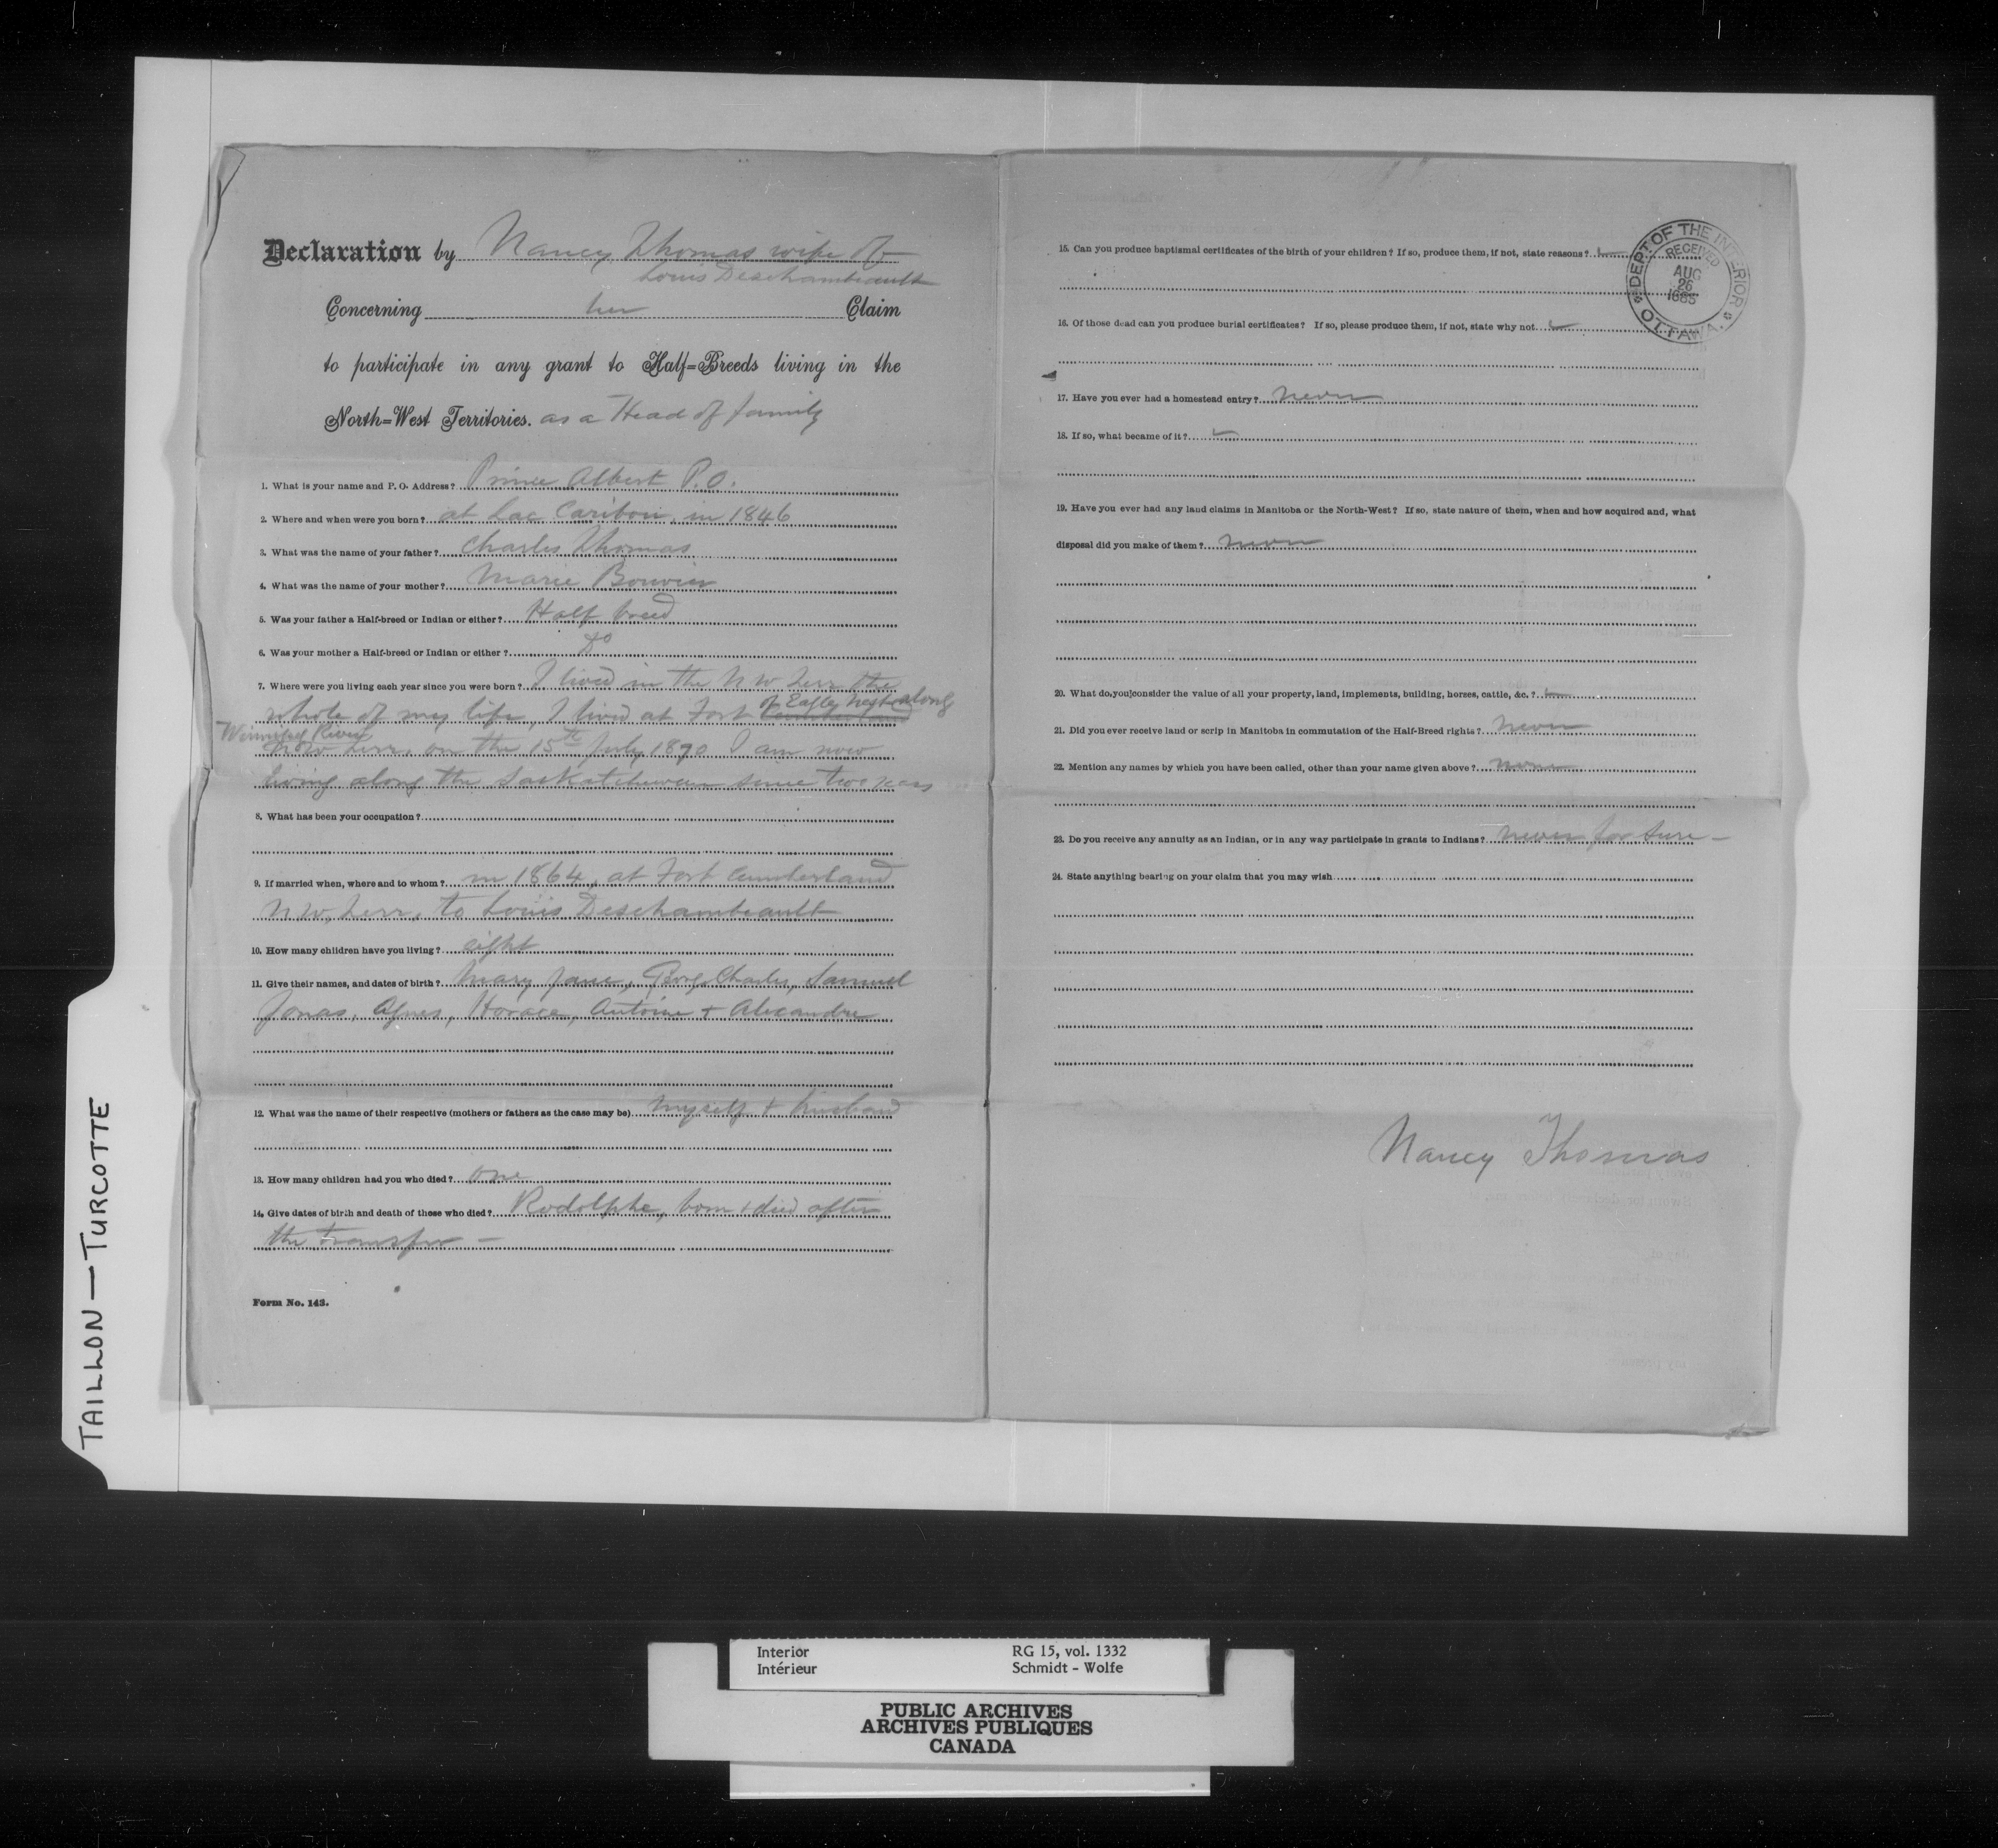 Declaration by Nancy Thomas wife of
Louis Deschambeault
Concerning her Claim
to participate in any grant to Half=Breeds living in the
North=West Territories. as a Head of family
1. What is your name and P. O. Address? Prince Albert P.O.
2. Where and when were you born? at Lac Caribou, in 1846
3. What was the name of your father? Charles Thomas
4. What was the name of your mother? Marie Bouvier
5. Was your father a Half-breed or Indian or either? Half breed
6. Was your mother a Half-breed or Indian or either? Do
7. Where were you living each year since you were born? I lived in the N W Terr the
whole of my life, I lived at Fort Cumberland of Eagles Nest along
Winnipeg River
N W Terr. on the 15th July 1870 I am now
living along the Saskatchewan since two years
8. What has been your occupation?
9. If married when, where and to whom? in 1864, at Fort Cumberland
N W, Terr, to Louis Deschambeault
10. How many children have you living? eight
11. Give their names, and dates of birth? Mary Jane, George, Charles, Samuel
Jonas, Agnes, Horace, Antoine + Alexandre
12. What was the name of their respective (mothers or fathers as the case may be) myself + husband
13. How many children had you who died? one
14. Give dates of birth and death of those who died? Rodolphe, born + died after
the transfer -
Form No. 143.
15. Can you produce baptismal certificates of the birth of your children? If so, produce them, if not, state reasons?
16. Of those dead can you produce burial certificates? If so, please produce them, if not, state why not
17. Have you ever had a homestead entry? never
18. If so, what became of it?
19. Have you ever had any land claims in Manitoba or the North-West? If so, state nature of them, when and how acquired and, what
disposal did you make of them? never
20. What do you consider the value of all your property, land, implements, building, horses, cattle, &c.?
21. Did you ever receive land or scrip in Manitoba in commutation of the Half-Breed rights? never
22. Mention any names by which you have been called, other than your name given above? none
23. Do you receive any annuity as an Indian, or in any way participate in grants to Indians? never for sure -
24. State anything bearing on your claim that you may wish
Nancy Thomas
DEPT OF THE INTERIOR
RECEIVED
AUG
26
1885
OTTAWA.
TAILLON — TURCOTTE
Interior RG 15, vol. 1332
Intérieur Schmidt - Wolfe
PUBLIC ARCHIVES
ARCHIVES PUBLIQUES
CANADA